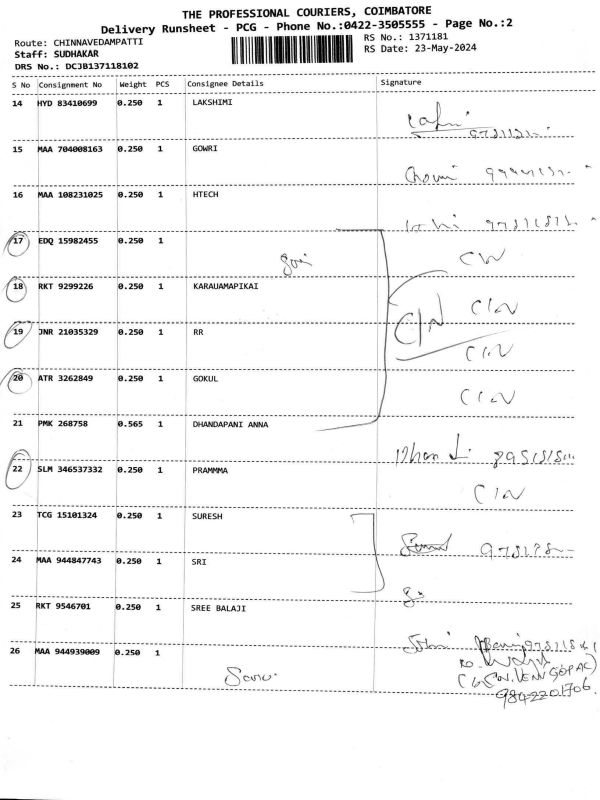 THE PROFESSIONAL COURIERS, COIMBATORE
Delivery Runsheet - PCG - Phone No.:0422-3505555 - Page No.:2
Route: CHINNAVEDAMPATTI
RS No.: 1371181
Staff: SUDHAKAR
RS Date: 23-May-2024
DRS No.: DCJB137118102
S No Consignment No Weight PCS Consignee Details Signature
14 HYD 83410699 0.250 1 LAKSHIMI
15 MAA 704008163 0.250 1 GOWRI
16 MAA 108231025 0.250 1 HTECH
17 EDQ 15982455 0.250 1 C/N
18 RKT 9299226 0.250 1 KARAUAMAPIKAI C/N
C/N
19 JNR 21035329 0.250 1 RR C/N
20 ATR 3262849 0.250 1 GOKUL C/N
21 PMK 268758 0.565 1 DHANDAPANI ANNA
22 SLM 346537332 0.250 1 PRAMMMA C/N
23 TCG 15101324 0.250 1 SURESH
24 MAA 944847743 0.250 1 SRI
25 RKT 9546701 0.250 1 SREE BALAJI
26 MAA 944939009 0.250 1
N. VENUGOPAL)
9842201706